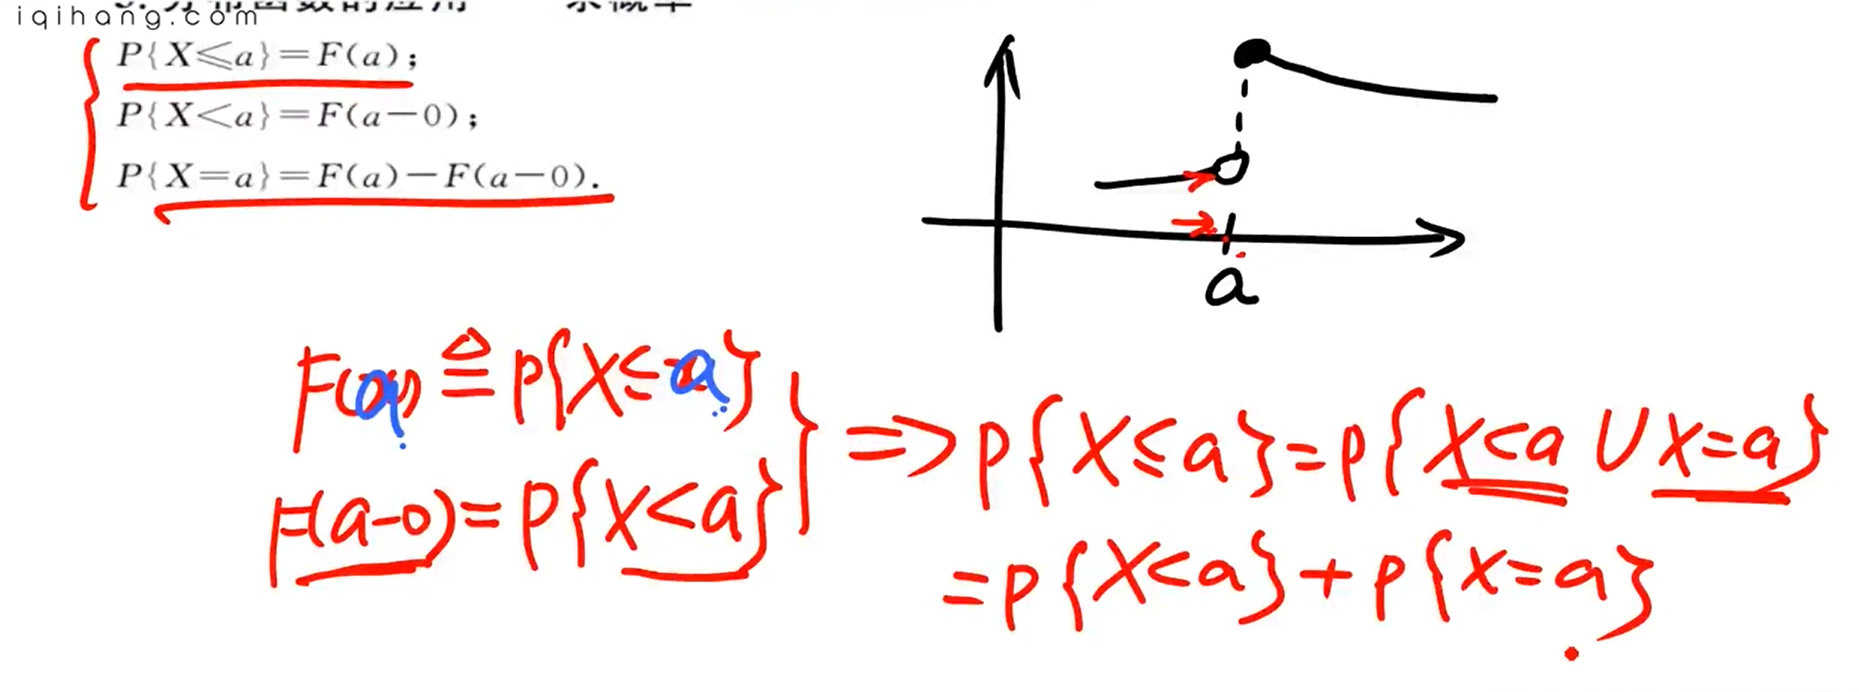 iqihang.com
P{X⩽a}=F(a);
P{X<a}=F(a-0);
P{X=a}=F(a)-F(a-0).
a
F(a) ≙ P{X≤a}
F(a-0)=P{X<a}
=> P{X≤a}=P{X<a ∪ X=a}
=P{X<a}+P{X=a}